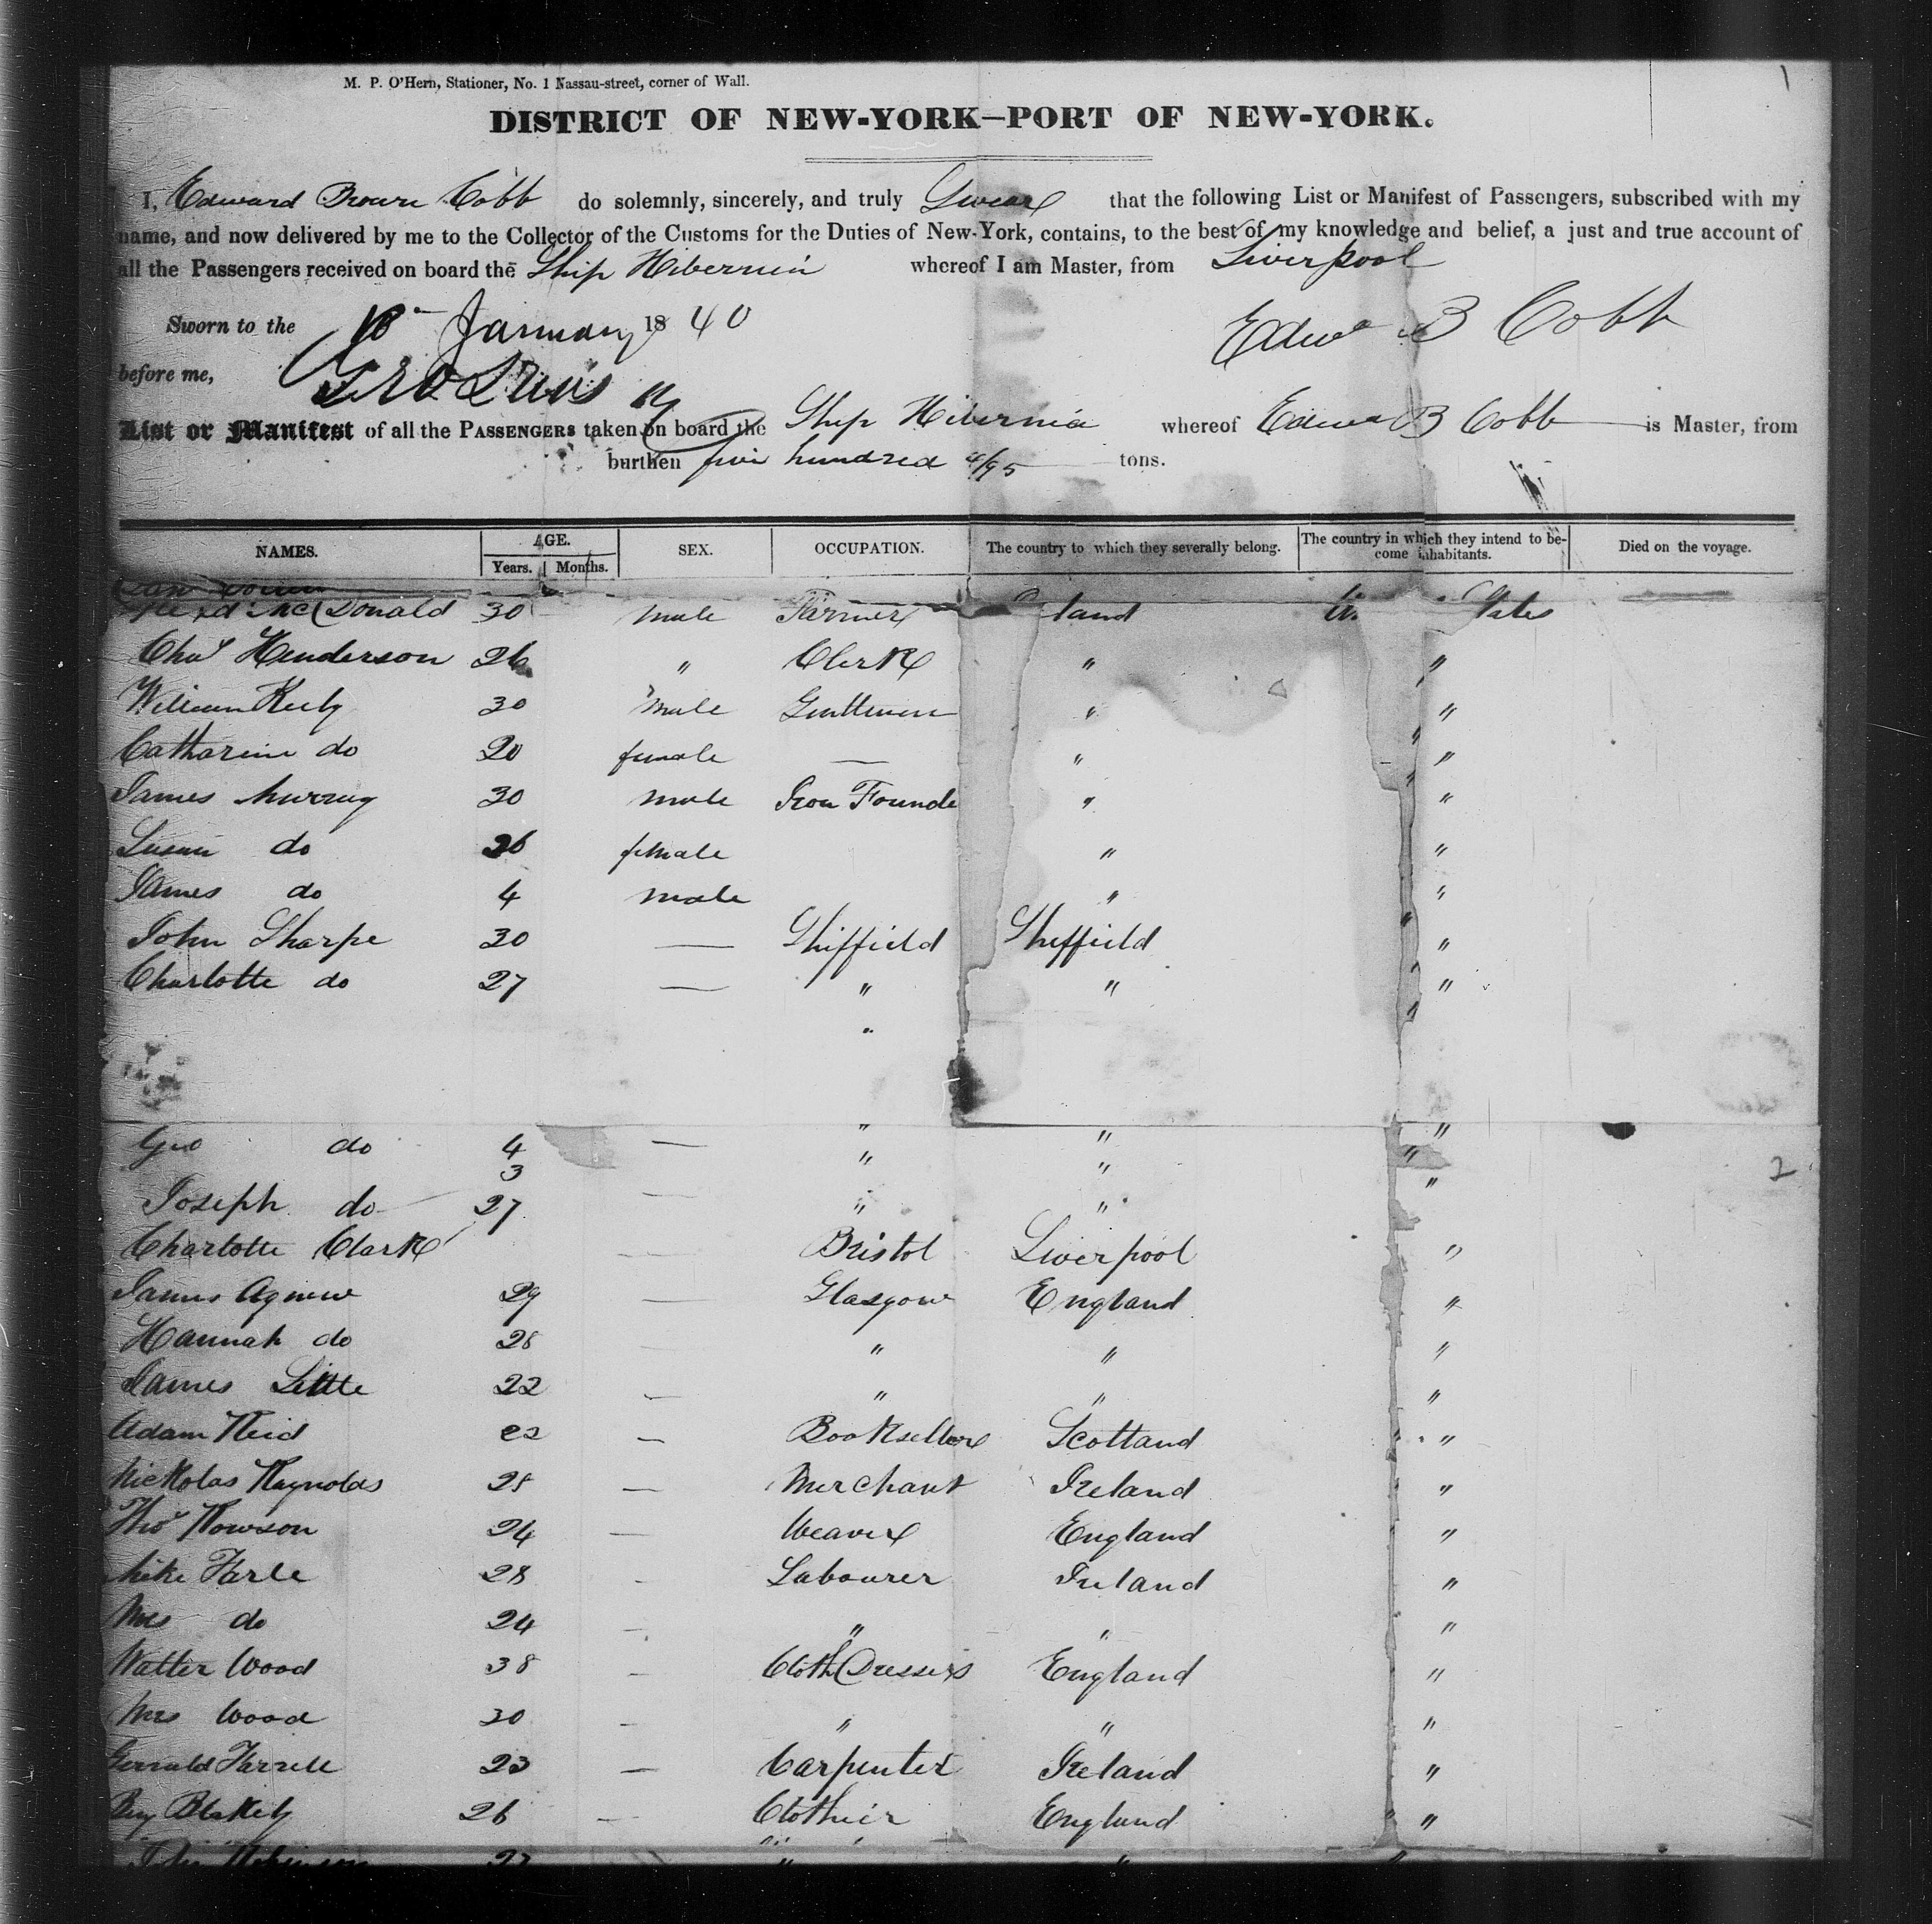 1
M. P. O'Hern, Stationer, No. 1 Nassau-street, corner of Wall.
DISTRICT OF NEW-YORK—PORT OF NEW-YORK.
I, Edward Brown Cobb do solemnly, sincerely, and truly Swear that the following List or Manifest of Passengers, subscribed with my
name, and now delivered by me to the Collector of the Customs for the Duties of New-York, contains, to the best of my knowledge and belief, a just and true account of
all the Passengers received on board the Ship Hibernia whereof I am Master, from Liverpool
Sworn to the January 1840 Edwd B Cobb
before me,
List or Manifest of all the PASSENGERS taken on board the Ship Hibernia whereof Edwd B Cobb is Master, from
burthen five hundred 4/95 tons.
NAMES. AGE. SEX. OCCUPATION. The country to which they severally belong. The country in which they intend to be-come inhabitants. Died on the voyage.
Years. Months.
McDonald 30 male Farmer land States
Chas Henderson 26 " Clerk " "
William Keely 30 male Gentleman " "
Catharine do 20 female — " "
James Murray 30 male Iron Founde " "
Susan do 26 female " "
James do 4 male " "
John Sharpe 30 — Shiffield Sheffield "
Charlotte do 27 — " " "
"
Geo do 4 — " " "
3 " " "
2
Joseph do 27 — " " "
Charlotte Clark — Bristol Liverpool "
James Agnew 29 — Glasgow England "
Hannah do 28 — " " "
James Little 22 — " " "
Adam Reid 22 — Bookseller Scotland "
Nickolas Raynolds 28 — Merchant Ireland "
Thos Rowson 24 — Weaver England "
Mike Farle 28 — Labourer Ireland "
Mrs do 24 — " " "
Walter Wood 38 — Cloth Dressers England "
Mrs Wood 30 — " " "
Gerrald Farrell 23 — Carpenter Ireland "
Benj Blakely 26 — Clothier England "
John Robinson 27 " " "